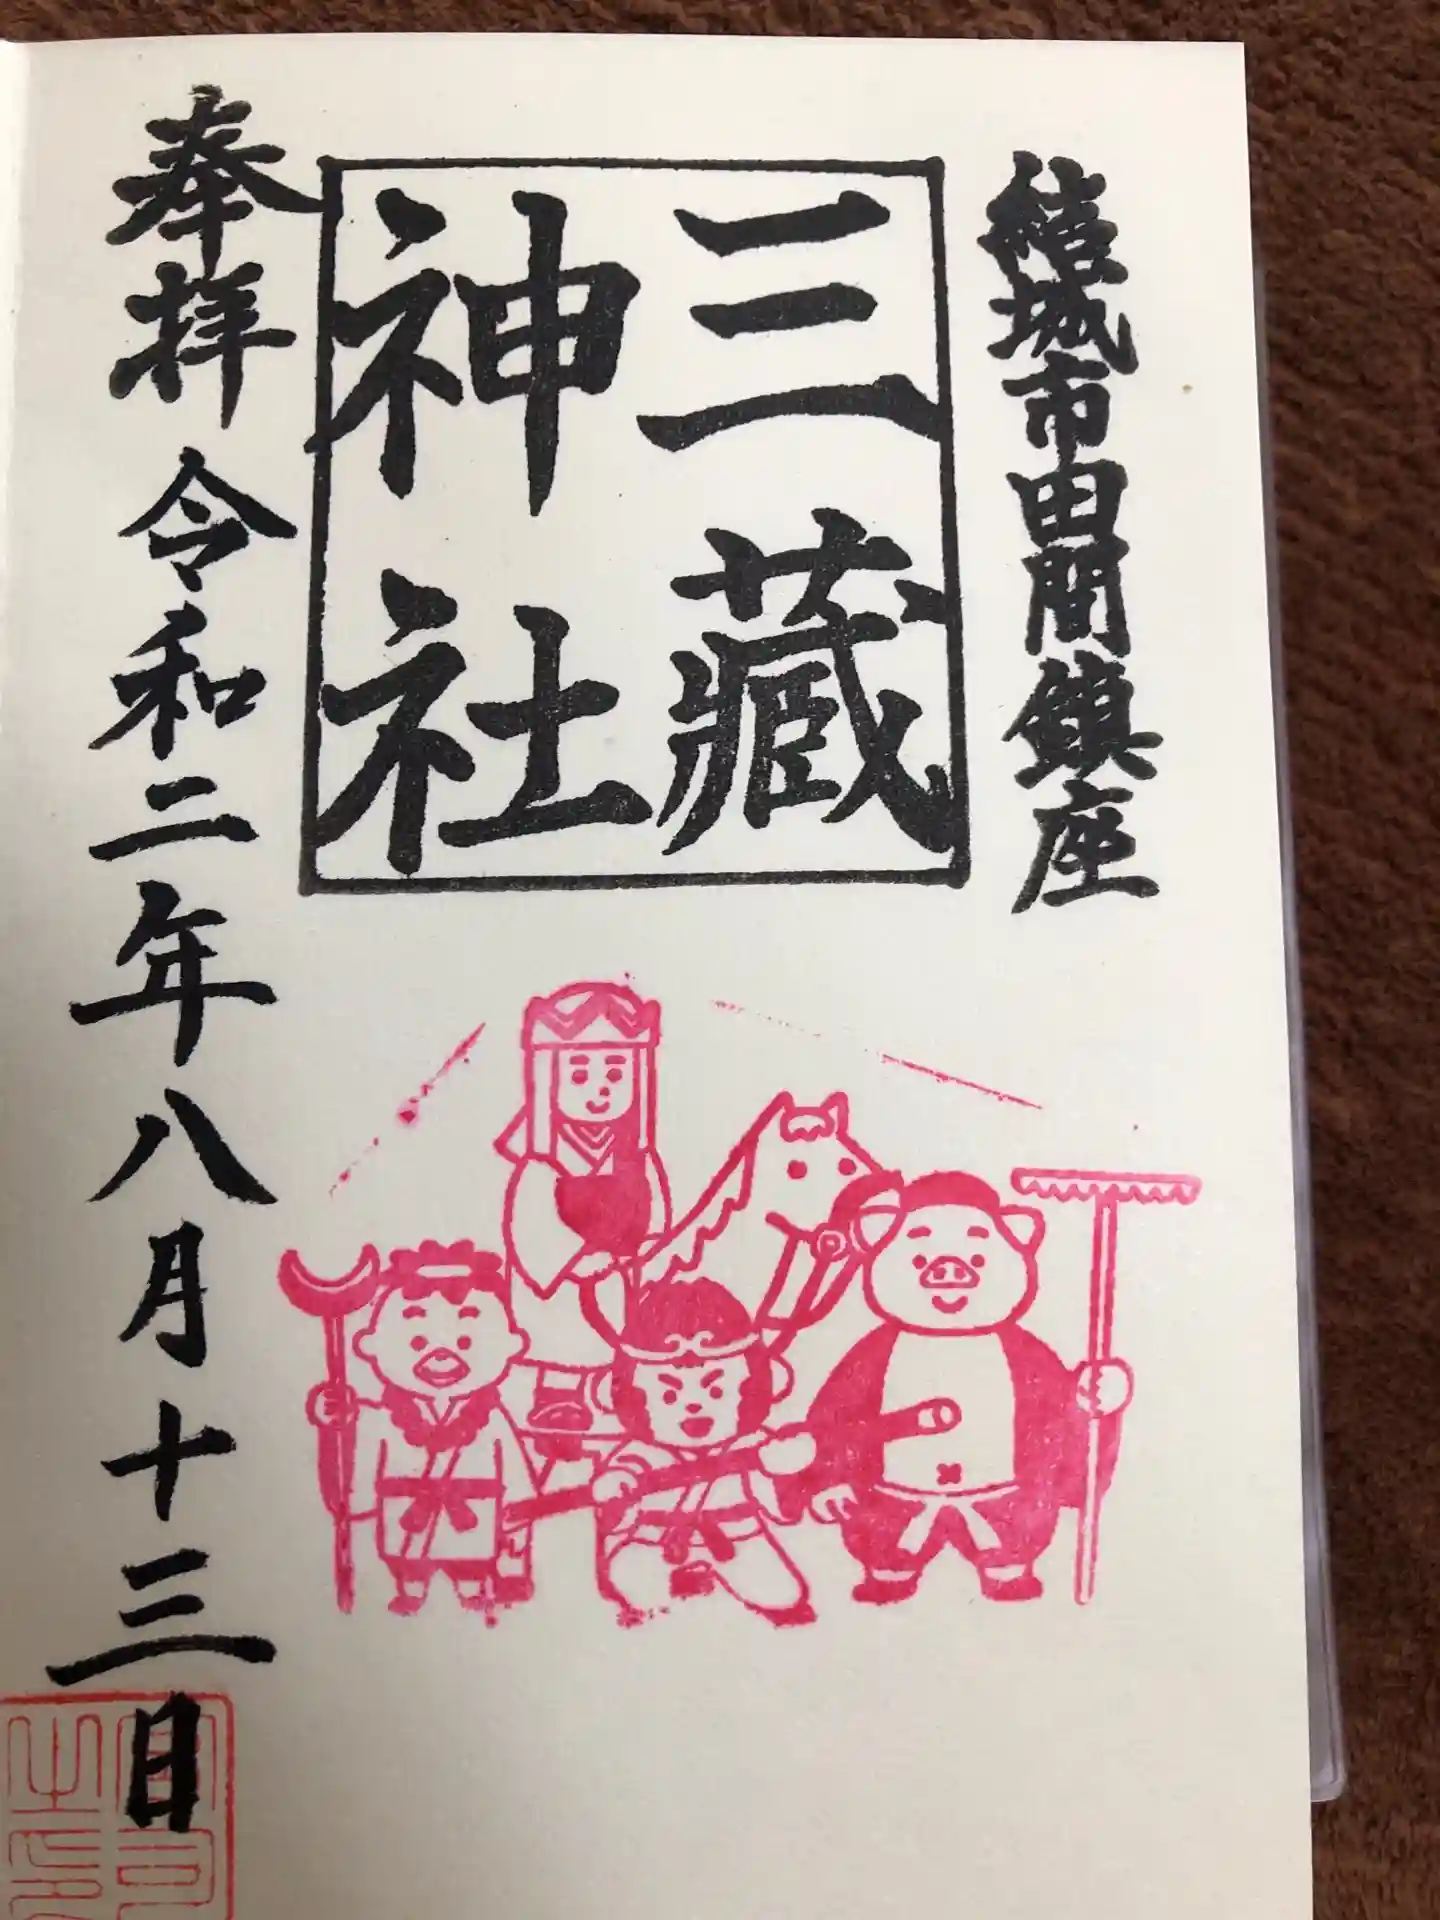 結城市田間鎮座
三藏
神社
奉拝 令和二年八月十三日